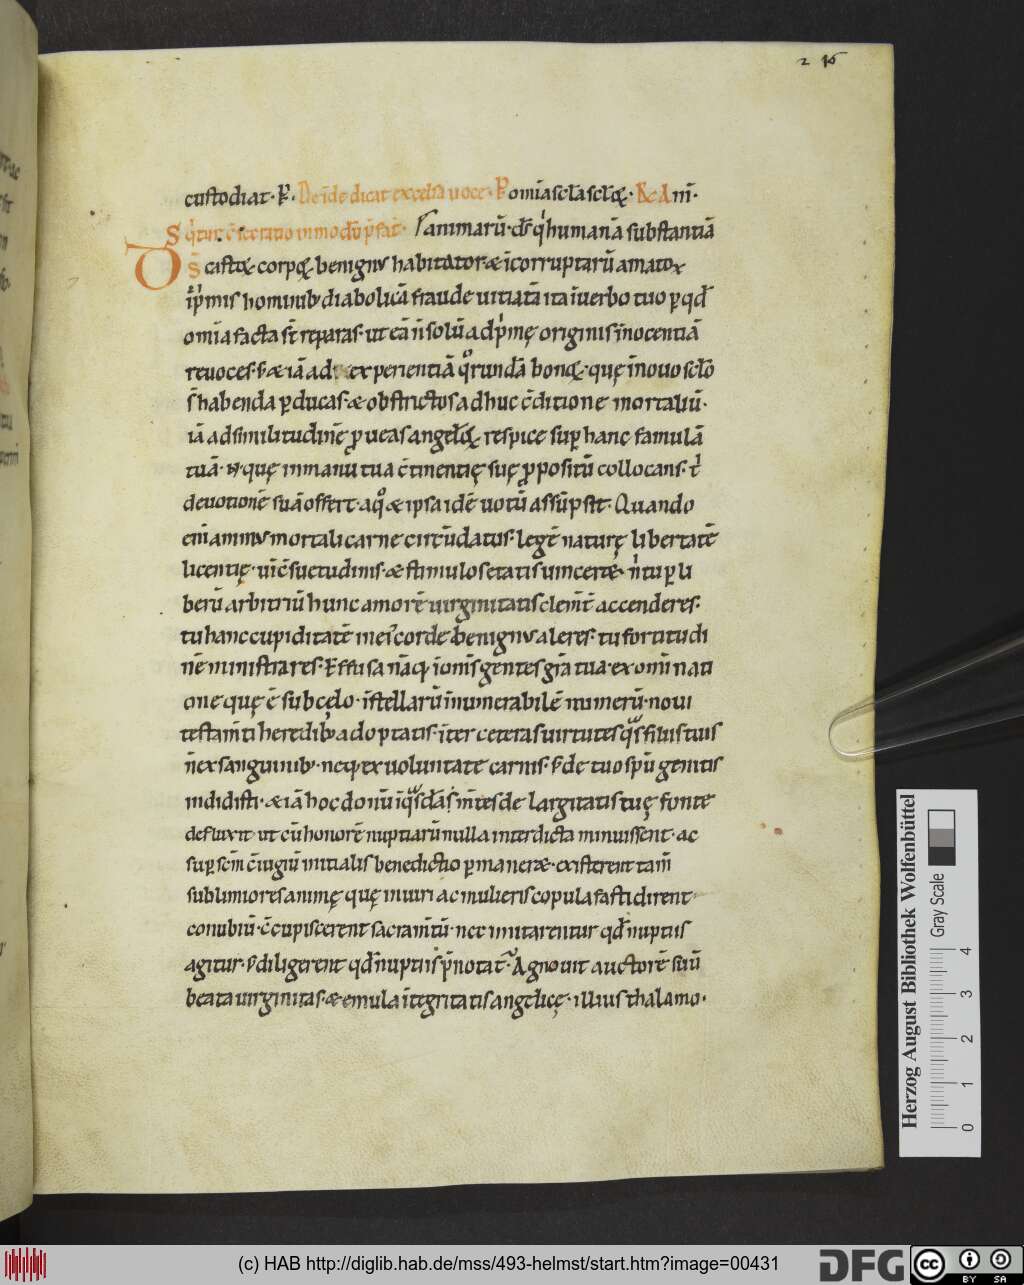 2 16
custodiat. R̄. Deīde dicat excelsa uoce. P omīa scła scłoꝝ. R& Am̄.
Sq̇tur c̄secratio in modū p̄fat. animarū. d̄s q̇ humanā substantiā
D S̄ castoꝝ corpoꝝ benignꝰ habitator. & īcorruptarū amator
ip̄mis hominibꝰ diabolica fraude uitiatā ita ī uerbo tuo p̱ qđ
omīa facta sī reparas. ut eā n̄ solū ad p̓mę originis īnocentiā
reuoces. s̄ & iā ad experientiā q̊rundā bonoꝝ. quę ī nouo scło
s̄ habenda p̱ducas. & obstrictos adhuc c̄ditione mortaliū.
iā ad similitudinē ꝓueas angeloꝝ. respice sup̱ hanc famulā
tuā. N. quę in manu tua c̄tinentię suę ꝓpositū collocans. t̓
deuotionē suā offert. a q̊ & ipsa idē uotū assūpsit. Quando
enī animꝰ mortali carne circūdatus. legē naturę libertatē
licentię. uī c̄suetudinis. & stimulos etatis uinceret. n̓ tu p̱ li
berū arbitriū hunc amorē uirginitatis clem̄t̄ accenderes.
tu hanc cupiditatē in eiꝰ corde benignꝰ aleres. tu fortitudi
nē ministrares. Effusa nāq; ī om̄is gentes gr̄a tua. ex omī nati
one quę ē sub cęlo. ī stellarū īnumerabilē numerū. noui
testam̄ti heredibꝰ adoptatis. īter ceteras uirtutes q̃s filiis tuis
n̄ ex sanguinibꝰ. neq; ex uoluntate carnis. s̄ de tuo sp̄u genitis
indidisti. & iā hoc donū ī q̃sdā m̄tes de largitatis tuę fonte
defluxit ut cū honorē nuptiarū nulla interdicta minuissent. ac
sup̱ sc̄m c̄iugiū initialis benedictio p̱maneret. existerent tam̄
sublimiores animę quę in uiri ac mulieris copula fastidirent
conubiū. c̄cupiscerent sacram̄tū. nec imitarentur qđ nuptiis
agitur. s̄ diligerent qđ nuptiis p̄notat᷑. Agnouit auctorē suū
beata uirginitas. & emula ītegritatis angelicę. illius thalamo.
Herzog August Bibliothek Wolfenbüttel
Gray Scale
0 1 2 3 4
(c) HAB http://diglib.hab.de/mss/493-helmst/start.htm?image=00431
DFG cc BY SA